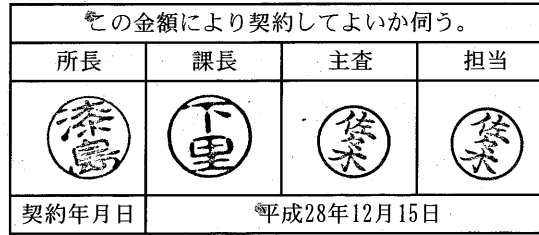 この金額により契約してよいか伺う。
所長 課長 主査 担当
漆島 下里 佐々木 佐々木
契約年月日 平成28年12月15日